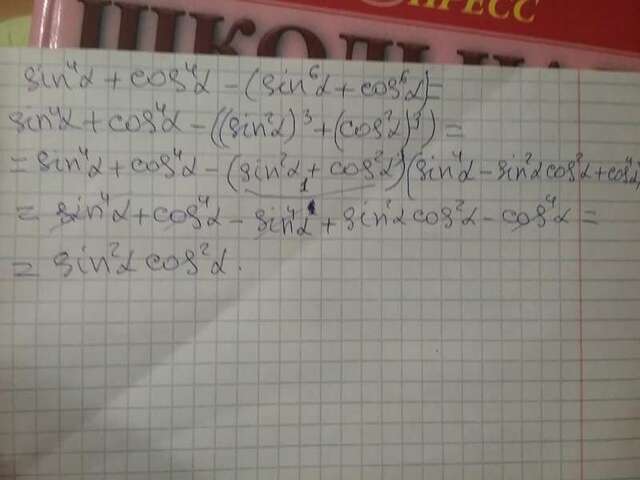 sin⁴α + cos⁴α - (sin⁶α + cos⁶α) =
sin⁴α + cos⁴α - ((sin²α)³ + (cos²α)³) =
= sin⁴α + cos⁴α - (sin²α + cos²α)(sin⁴α - sin²α cos²α + cos⁴α
1
= sin⁴α + cos⁴α - sin⁴α + sin²α cos²α - cos⁴α =
= sin²α cos²α.